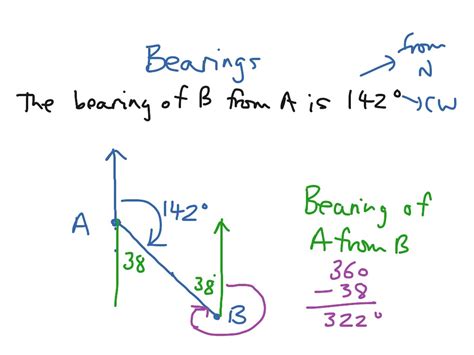 Bearings
from
N
The bearing of B from A is 142° → CW
A
142°
38
38°
B
Bearing of
A from B
360
- 38
322°